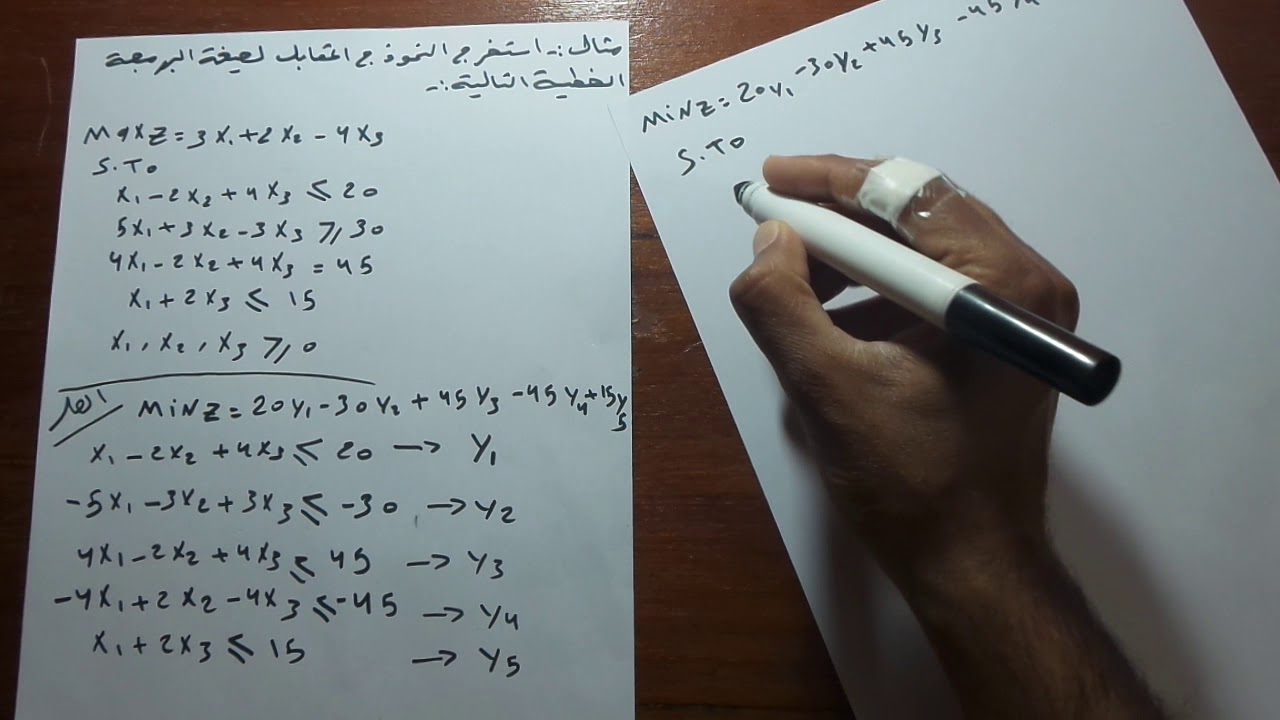 مثال:- استخرج النموذج المقابل لصيغة البرمجة
الخطية التالية:-
Max Z = 3X₁ + 2X₂ - 4X₃
S.To
X₁ - 2X₂ + 4X₃ ≤ 20
5X₁ + 3X₂ - 3X₃ ≥ 30
4X₁ - 2X₂ + 4X₃ = 45
X₁ + 2X₃ ≤ 15
X₁, X₂, X₃ ≥ 0
الحل
MiN Z = 20Y₁ - 30Y₂ + 45Y₃ - 45Y₄ + 15Y₅
X₁ - 2X₂ + 4X₃ ≤ 20 → Y₁
-5X₁ - 3X₂ + 3X₃ ≤ -30 → Y₂
4X₁ - 2X₂ + 4X₃ ≤ 45 → Y₃
-4X₁ + 2X₂ - 4X₃ ≤ -45 → Y₄
X₁ + 2X₃ ≤ 15 → Y₅
MiN Z = 20Y₁ - 30Y₂ + 45Y₃ - 45
S.To